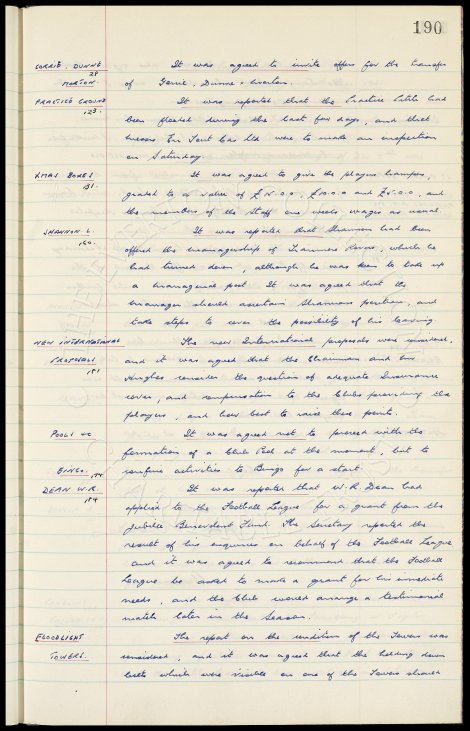 190
GORRIE, DUNNE It was agreed to invite offers for the transfer
28
MORTON of Gorrie, Dunne & Morton.
PRACTICE GROUND It was reported that the Practice Pitch had
123. been flooded during the last few days, and that
Messrs En Tout Cas Ltd were to make an inspection
on Saturday.
XMAS BOXES It was agreed to give the players hampers,
181. graded to a value of £15.0.0, £10.0.0 and £5.0.0, and
the members of the staff one weeks wages as usual.
SHANNON L. It was reported that Shannon had been
160. offered the managership of Tranmere Rovers, which he
had turned down, although he was keen to take up
a managerial post. It was agreed that the
manager should ascertain Shannons position, and
take steps to cover the possibility of his leaving.
NEW INTERNATIONAL The new International proposals were considered,
PROPOSALS and it was agreed that the Chairman and
181 Hughes consider the question of adequate Insurance
cover, and compensation to the Clubs providing the
players, and how best to raise these points.
POOLS &c It was agreed not to proceed with the
formation of a Club Pool at the moment, but to
BINGO. confine activities to Bingo for a start.
DEAN W.R. It was reported that W.R. Dean had
184 applied to the Football League for a grant from the
Jubilee Benevolent Fund. The Secretary reported the
result of his enquiries on behalf of the Football League
and it was agreed to recommend that the Football
League be asked to make a grant for his immediate
needs, and the Club would arrange a testimonial
match later in the Season.
FLOODLIGHT The report on the condition of the Towers was
TOWERS. considered, and it was agreed that the holding down
bolts which were visible on one of the Towers should